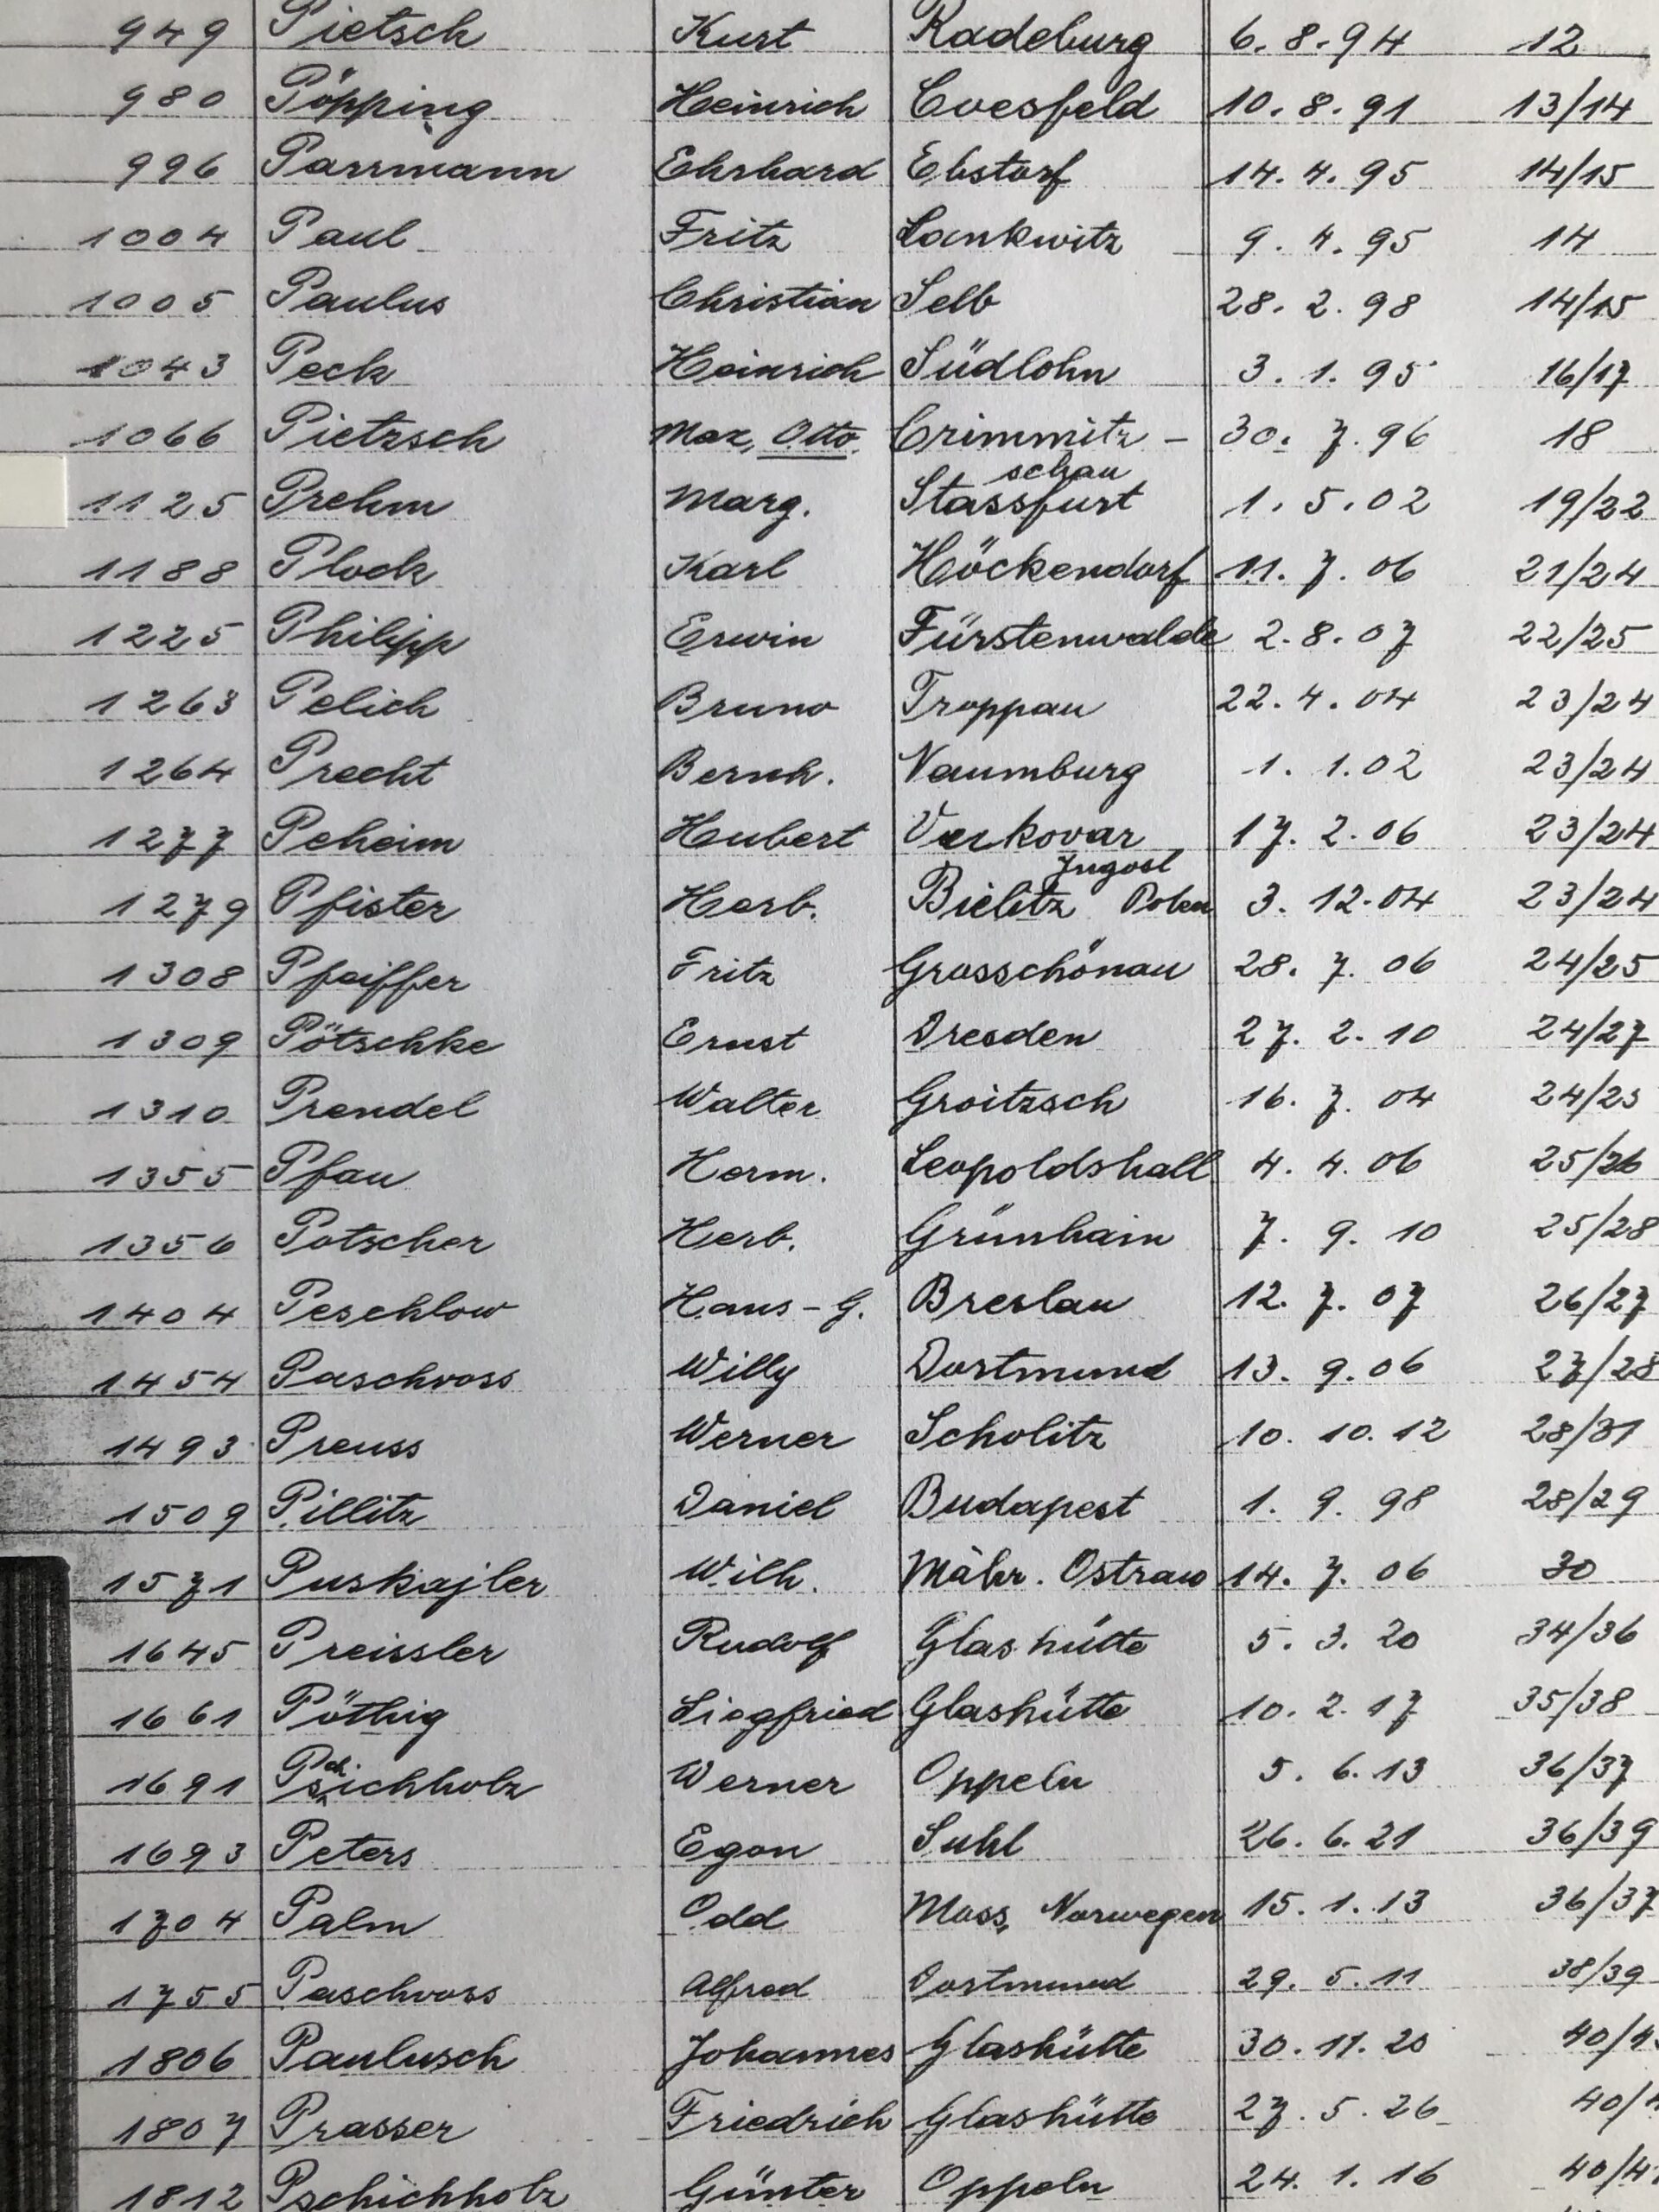 949 Pietsch Kurt Radeburg 6.8.94 12
980 Pöpping Heinrich Coesfeld 10.8.91 13/14
996 Parrmann Ehrhard Ebstorf 14.4.95 14/15
1004 Paul Fritz Lankwitz 9.4.95 14
1005 Paulus Christian Selb 28.2.98 14/15
1043 Peck Heinrich Südlohn 3.1.95 16/17
1066 Pietzsch Max, Otto Crimmitz- 30.7.96 18
schau
1125 Prehm Marg. Stassfurt 1.5.02 19/22
1188 Plock Karl Höckendorf 11.7.06 21/24
1225 Philipp Erwin Fürstenwalde 2.8.07 22/25
1263 Pelich Bruno Troppau 22.4.04 23/24
1264 Precht Bernh. Naumburg 1.1.02 23/24
1277 Peheim Hubert Vukovar 17.2.06 23/24
Jugosl
1279 Pfister Herb. Bielitz Polen 3.12.04 23/24
1308 Pfeiffer Fritz Grosschönau 28.7.06 24/25
1309 Pötschke Ernst Dresden 27.2.10 24/27
1310 Prendel Walter Groitzsch 16.7.04 24/25
1355 Pfau Herm. Leopoldshall 4.4.06 25/26
1356 Potscher Herb. Grünhain 7.9.10 25/28
1404 Peschlow Hans-G. Breslau 12.7.07 26/27
1454 Paschvoss Willy Dortmund 13.9.06 27/28
1493 Preuss Werner Scholitz 10.10.12 28/31
1509 Pillitz Daniel Budapest 1.9.98 28/29
1571 Puskajler Wilh. Mähr. Ostrau 14.7.06 30
1645 Preissler Rudolf Glashütte 5.3.20 34/36
1661 Pöthig Siegfried Glashütte 10.2.17 35/38
1691 Pschichholz Werner Oppeln 5.6.13 36/37
1693 Peters Egon Suhl 26.6.21 36/39
1704 Palm Odd Moss, Norwegen 15.1.13 36/37
1755 Paschvoss Alfred Dortmund 29.5.11 38/39
1806 Paulusch Johannes Glashütte 30.11.20 40/4
1807 Prasser Friedrich Glashütte 27.5.26 40/
1812 Pschichholz Günter Oppeln 24.1.16 40/4